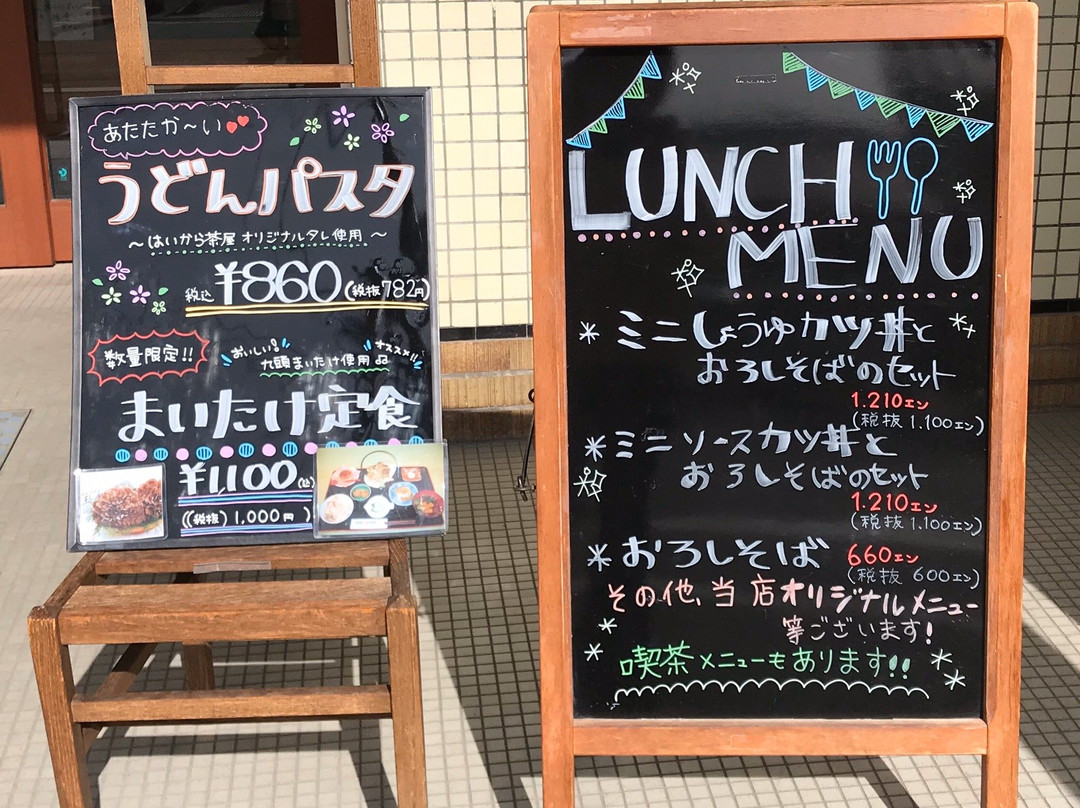 あたたか〜い
うどんパスタ
〜はいから茶屋 オリジナルタレ使用〜
税込 ¥860 (税抜782円)
数量限定!!
おいしい! 九頭まいたけ使用 オススメ!!
まいたけ定食
¥1,100 (込)
((税抜) 1,000円)
LUNCH
MENU
* ミニしょうゆカツ丼と
おろしそばのセット
1.210エン
(税抜 1.100エン)
* ミニソースカツ丼と
おろしそばのセット
1.210エン
(税抜 1.100エン)
* おろしそば 660エン
(税抜 600エン)
その他、当店オリジナルメニュー
等ございます!
喫茶メニューもあります!!